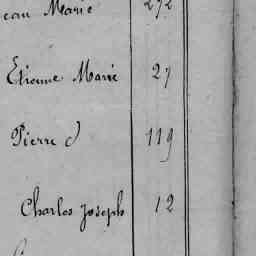 ean Marie 272
Etienne Marie 27
Pierre J 119
Charles Joseph 12